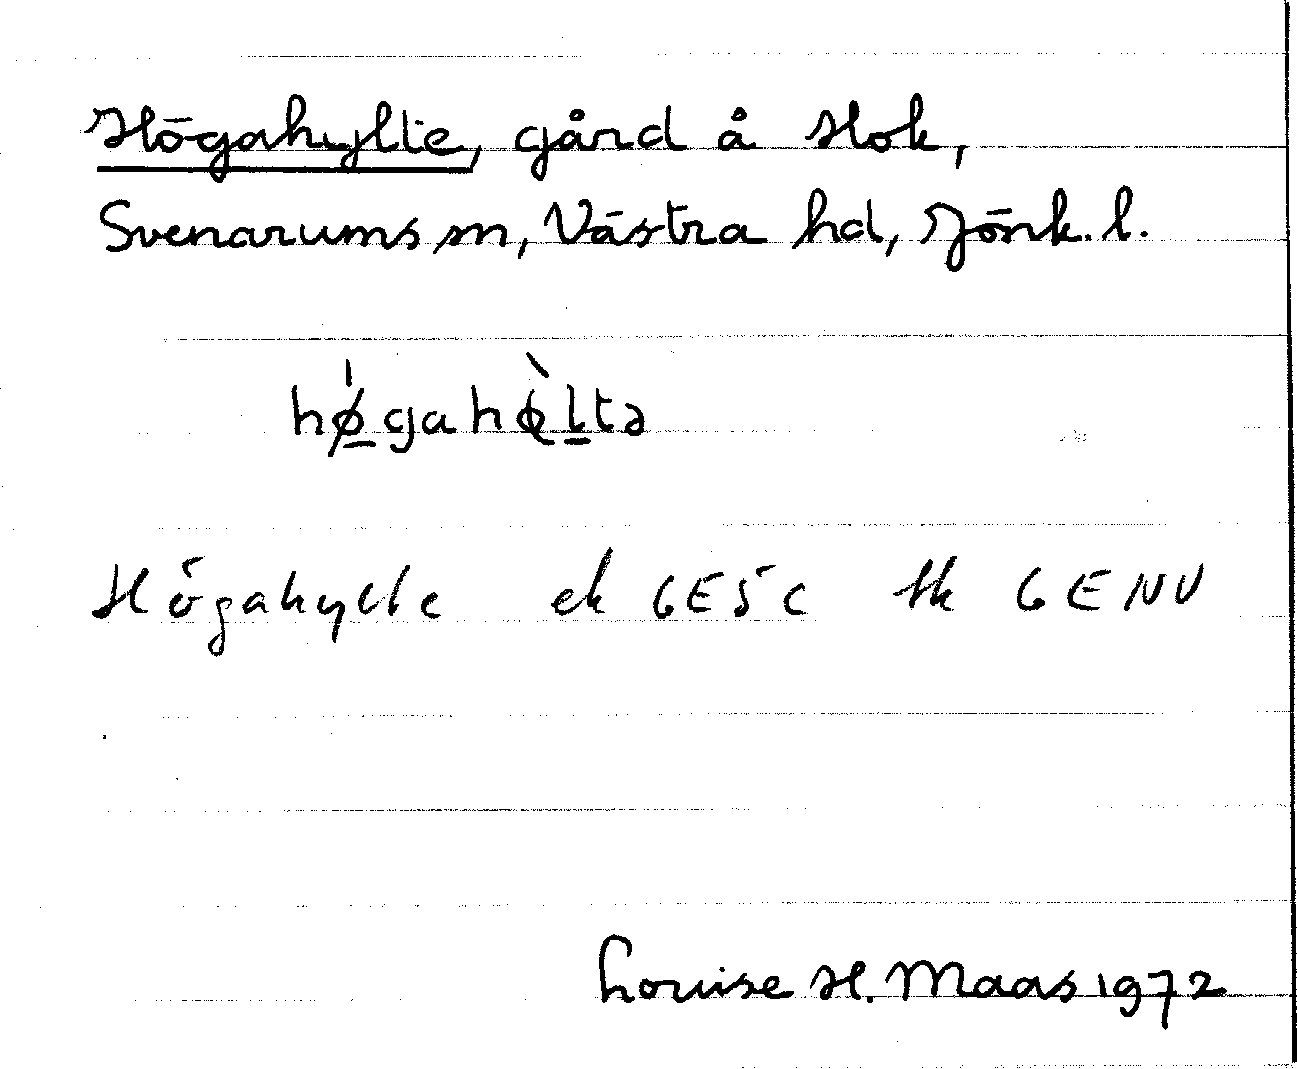 Högahylte, gård å Hok,
Svenarums sn, Västra hd, Jönk. l.
hǿ̲gahø̀l̲tə
Högahylte ek 6E5c tk 6E NV
Louise H. Maas 1972